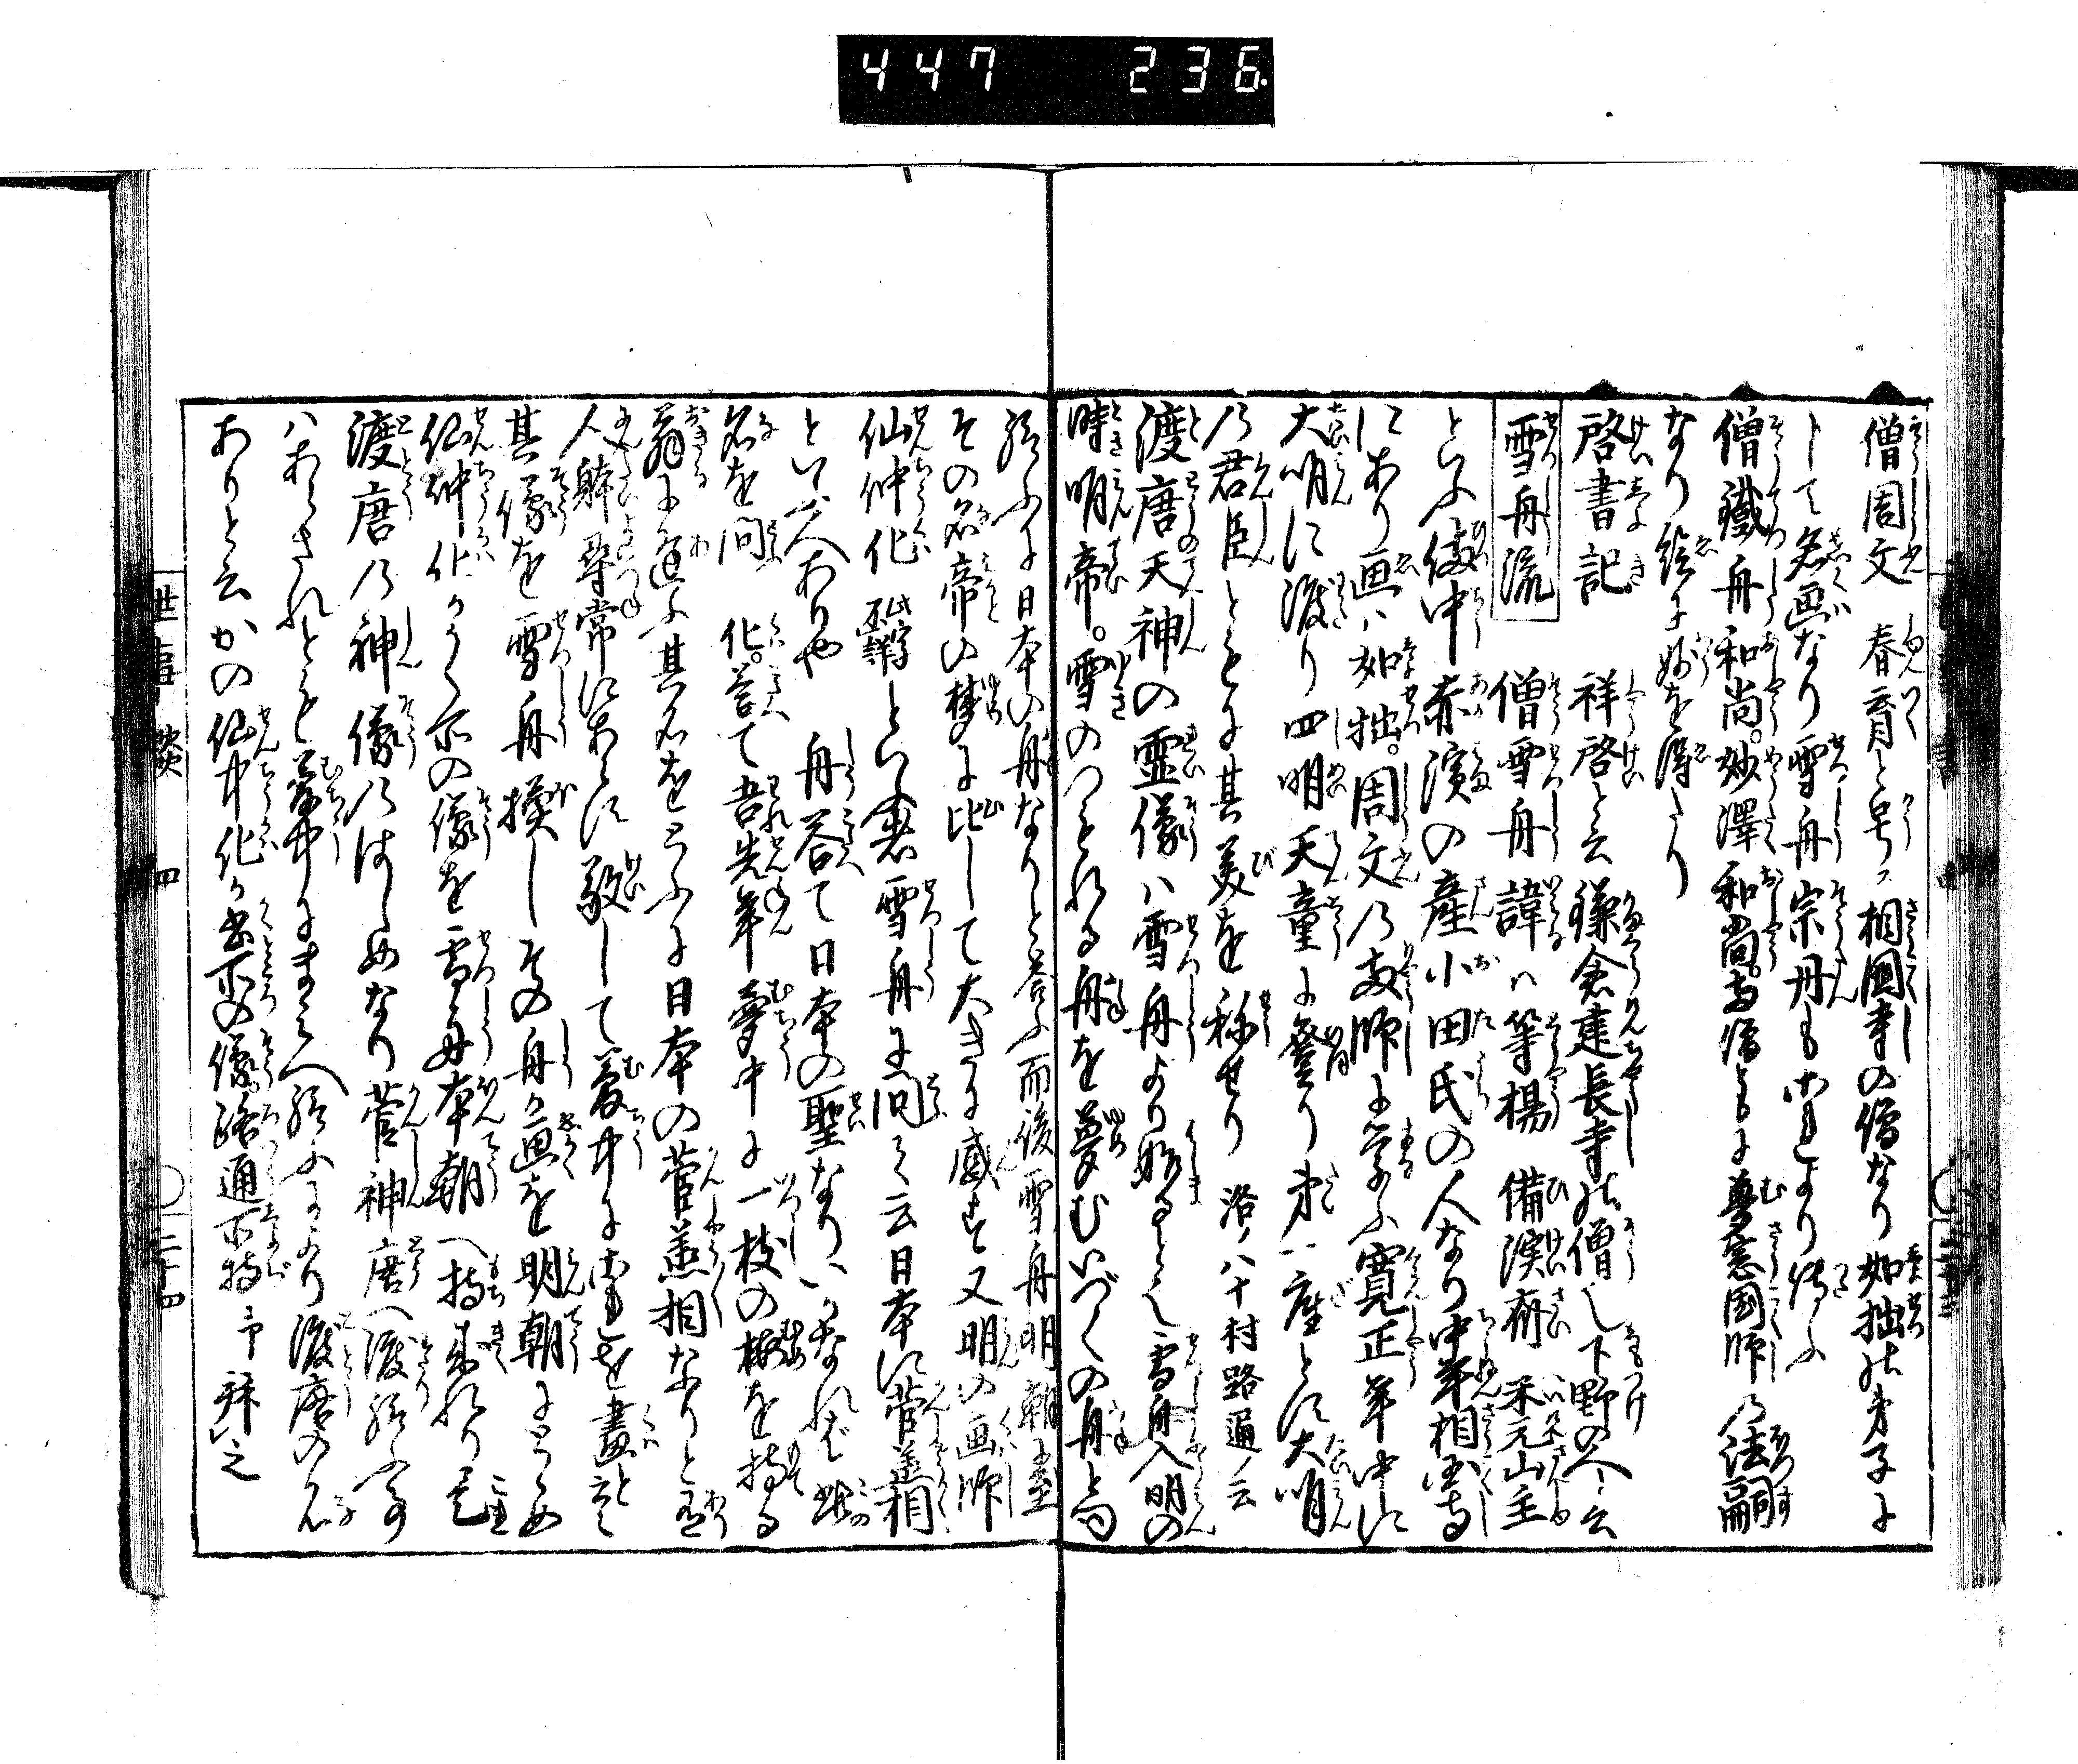 447 236
僧周文 春育と号ス相國寺の僧なり如拙の弟子に
して名画なり雪舟宗丹もこれより傳ふ
僧鐵舟和尚。妙澤和尚。両僧ともに夢窓国師の法嗣
なり絵に妙を得たり
啓書記 祥啓と云鎌倉建長寺の僧也下野の人と云
雪舟流 僧雪舟諱ハ等楊 備渓斎 米元山主
といふ備中赤濱の産小田氏の人なり中年相国寺
にあり画ハ如拙。周文の両師に学ふ寛正年中に
大明に渡り四明天童に登り第一座とす大明
の君臣ともに其美を称せり 洛八十村路通ノ云
渡唐天神の霊像ハ雪舟より始ると也雪舟入明の
時明帝。雪のつもれる舟を夢むいづくの舟と問
給ふに日本の舟なりと答ふ而後雪舟明朝に至
その名帝の夢に比して大きに感す又明の画師
仙仲化 といふ者雪舟に問て云日本に菅丞相
といふ人ありや 舟答て日本の聖なりいかなれば此
名を問 化。答て吾先年夢中に一枝の梅を持る
翁に逢ふ其名をとふに日本の菅丞相なりと
人躰尋常にあらす敬して夢中にこれを畫と云
其像を雪舟換しその舟か画を明朝にとゝめ
仙仲化かかく所の像を雪舟本朝へ持来れり是
渡唐の神像のはしめなり菅神唐へ渡給ふ事
ハあらされとも夢中にまみへ給ふにより渡唐の名
ありと云かの仙仲化か書所の像。路通所持予拝之
世事談 四 二十四